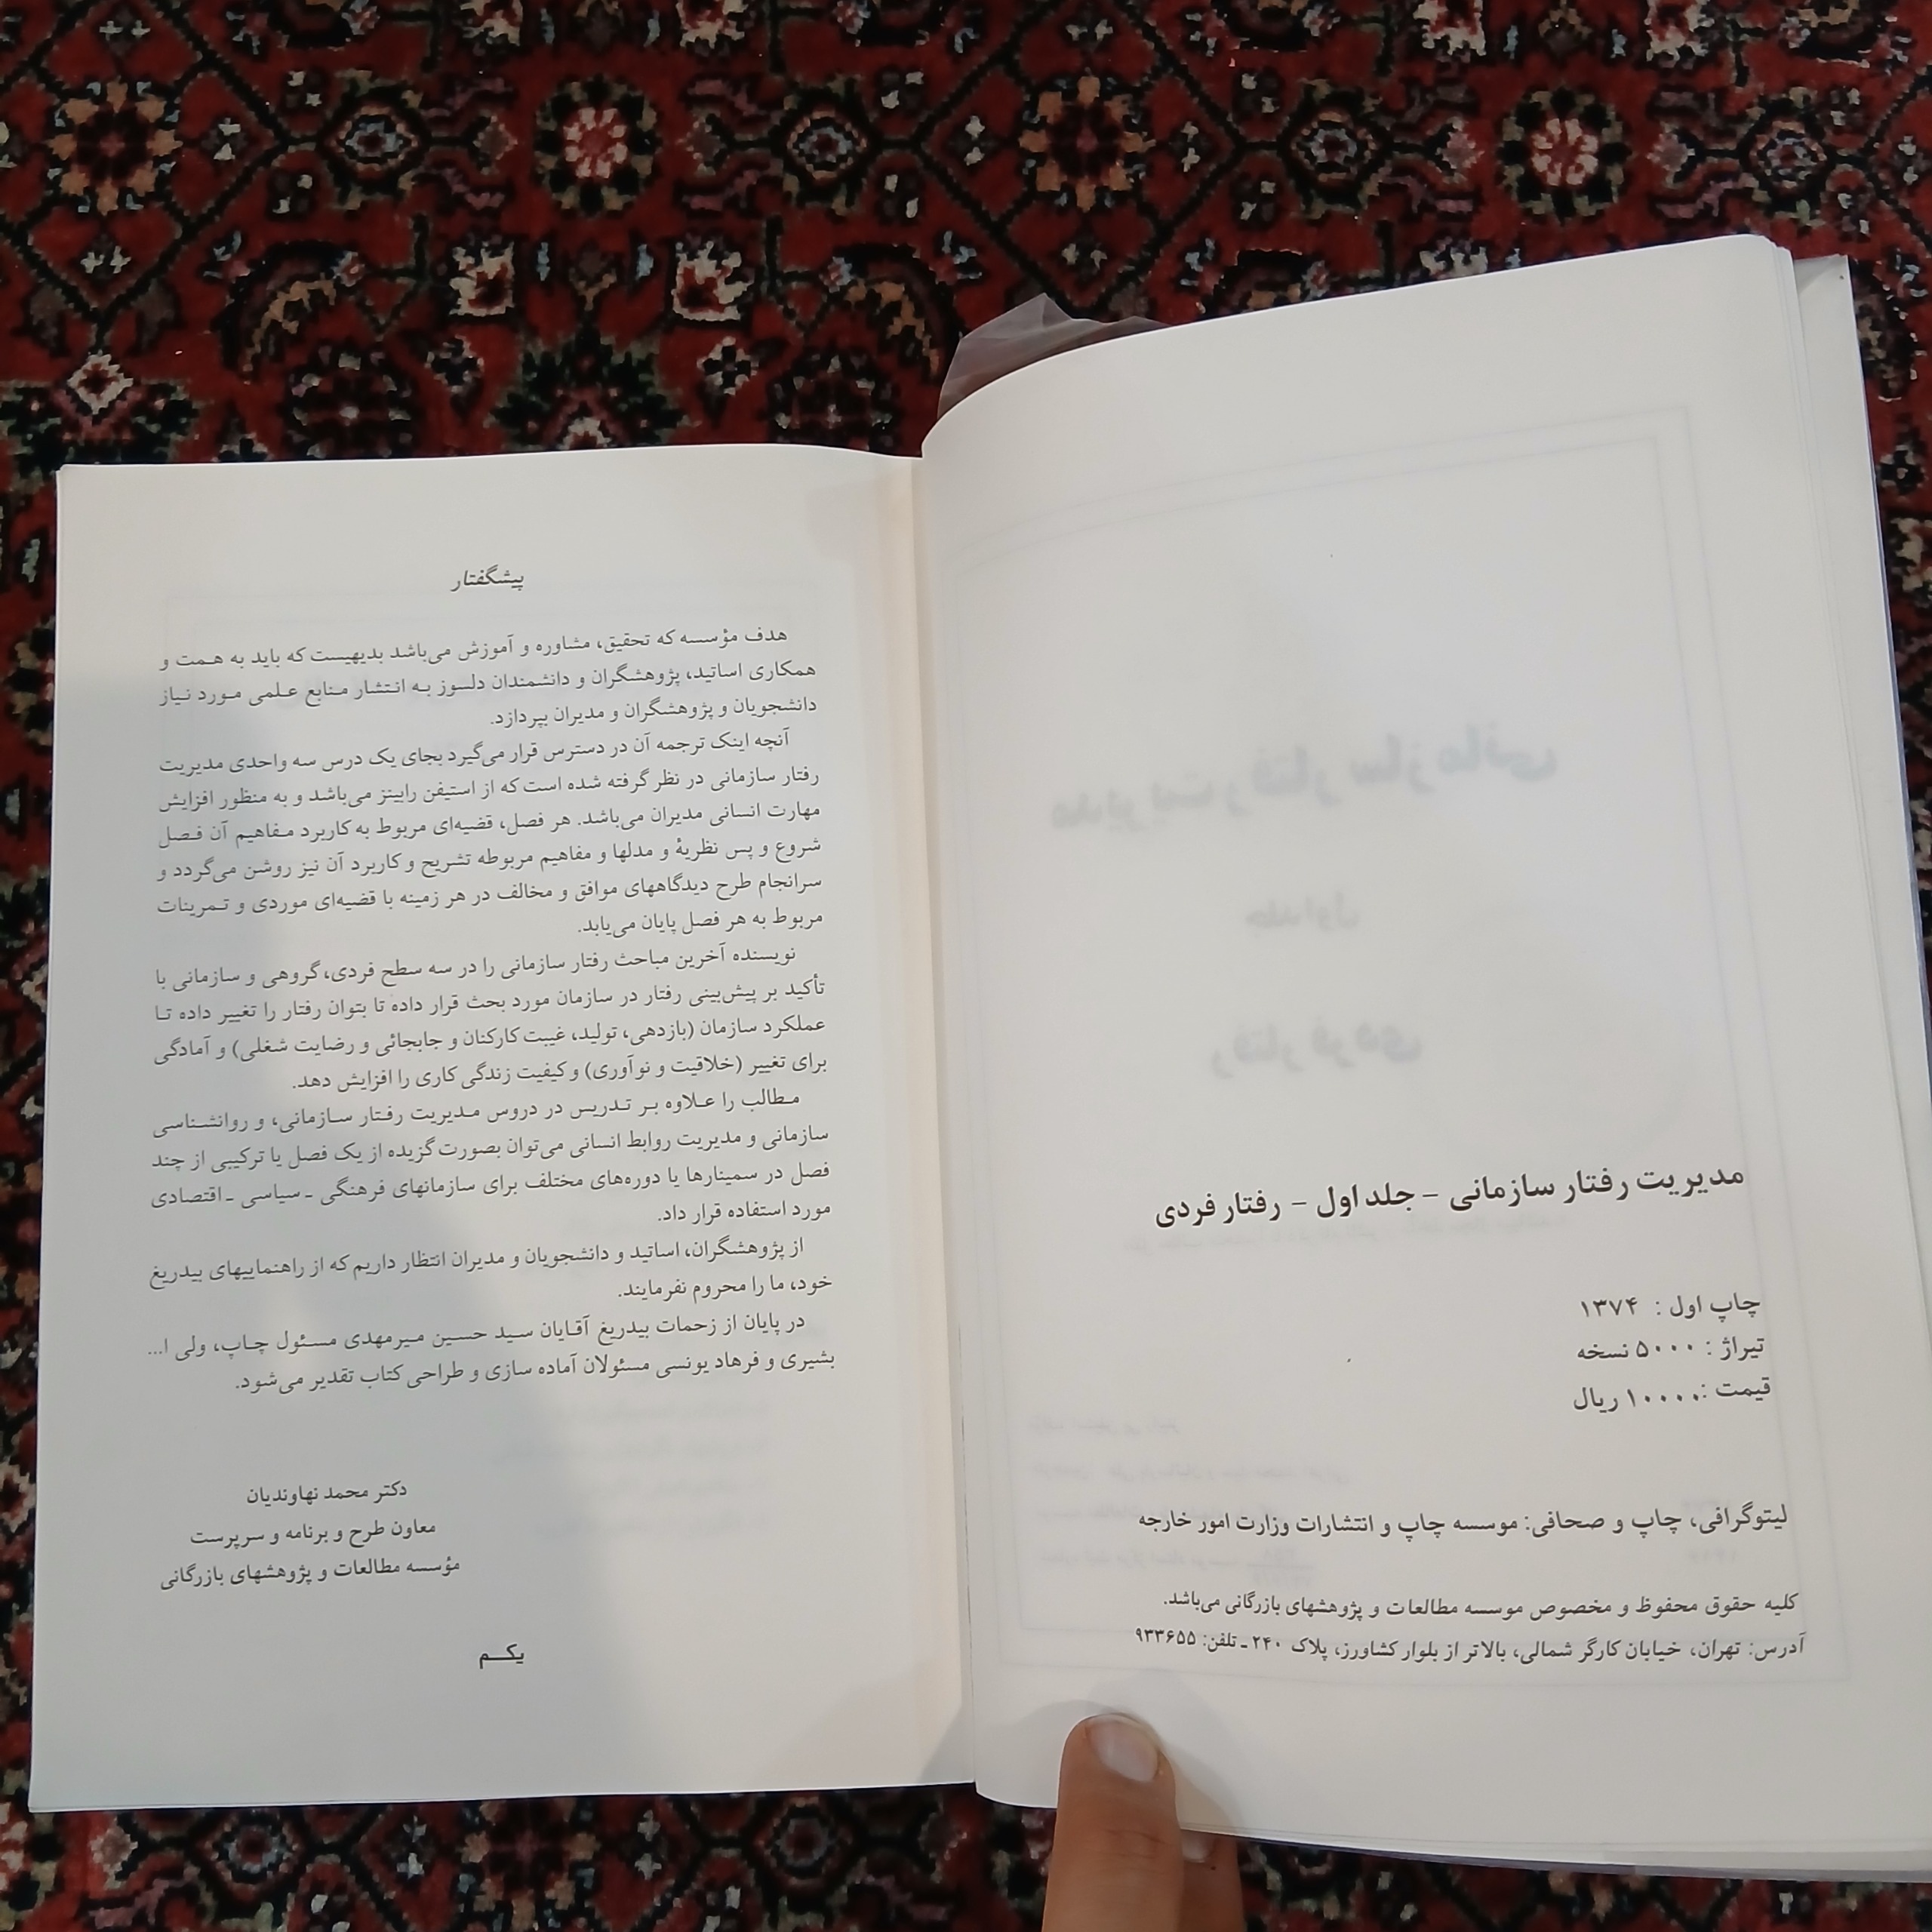 مدیریت رفتار سازمانی – جلد اول – رفتار فردی
چاپ اول : ۱۳۷۴
تیراژ : ۵۰۰۰ نسخه
قیمت : ۱۰۰۰۰ ریال
لیتوگرافی، چاپ و صحافی: موسسه چاپ و انتشارات وزارت امور خارجه
کلیه حقوق محفوظ و مخصوص موسسه مطالعات و پژوهشهای بازرگانی می‌باشد.
آدرس: تهران، خیابان کارگر شمالی، بالاتر از بلوار کشاورز، پلاک ۲۴۰ ـ تلفن: ۹۳۳۶۵۵
پیشگفتار
هدف مؤسسه که تحقیق، مشاوره و آموزش می‌باشد بدیهیست که باید به همت و
همکاری اساتید، پژوهشگران و دانشمندان دلسوز به انتشار منابع علمی مورد نیاز
دانشجویان و پژوهشگران و مدیران بپردازد.
آنچه اینک ترجمه آن در دسترس قرار می‌گیرد بجای یک درس سه واحدی مدیریت
رفتار سازمانی در نظر گرفته شده است که از استیفن رابینز می‌باشد و به منظور افزایش
مهارت انسانی مدیران می‌باشد. هر فصل، قضیه‌ای مربوط به کاربرد مفاهیم آن فصل
شروع و پس نظریهٔ و مدلها و مفاهیم مربوطه تشریح و کاربرد آن نیز روشن می‌گردد و
سرانجام طرح دیدگاههای موافق و مخالف در هر زمینه با قضیه‌ای موردی و تمرینات
مربوط به هر فصل پایان می‌یابد.
نویسنده آخرین مباحث رفتار سازمانی را در سه سطح فردی، گروهی و سازمانی با
تأکید بر پیش‌بینی رفتار در سازمان مورد بحث قرار داده تا بتوان رفتار را تغییر داده تا
عملکرد سازمان (بازدهی، تولید، غیبت کارکنان و جابجائی و رضایت شغلی) و آمادگی
برای تغییر (خلاقیت و نوآوری) و کیفیت زندگی کاری را افزایش دهد.
مطالب را علاوه بر تدریس در دروس مدیریت رفتار سازمانی، و روانشناسی
سازمانی و مدیریت روابط انسانی می‌توان بصورت گزیده از یک فصل یا ترکیبی از چند
فصل در سمینارها یا دوره‌های مختلف برای سازمانهای فرهنگی ـ سیاسی ـ اقتصادی
مورد استفاده قرار داد.
از پژوهشگران، اساتید و دانشجویان و مدیران انتظار داریم که از راهنماییهای بیدریغ
خود، ما را محروم نفرمایند.
در پایان از زحمات بیدریغ آقایان سید حسین میرمهدی مسئول چاپ، ولی ا...
بشیری و فرهاد یونسی مسئولان آماده سازی و طراحی کتاب تقدیر می‌شود.
دکتر محمد نهاوندیان
معاون طرح و برنامه و سرپرست
مؤسسه مطالعات و پژوهشهای بازرگانی
یکم